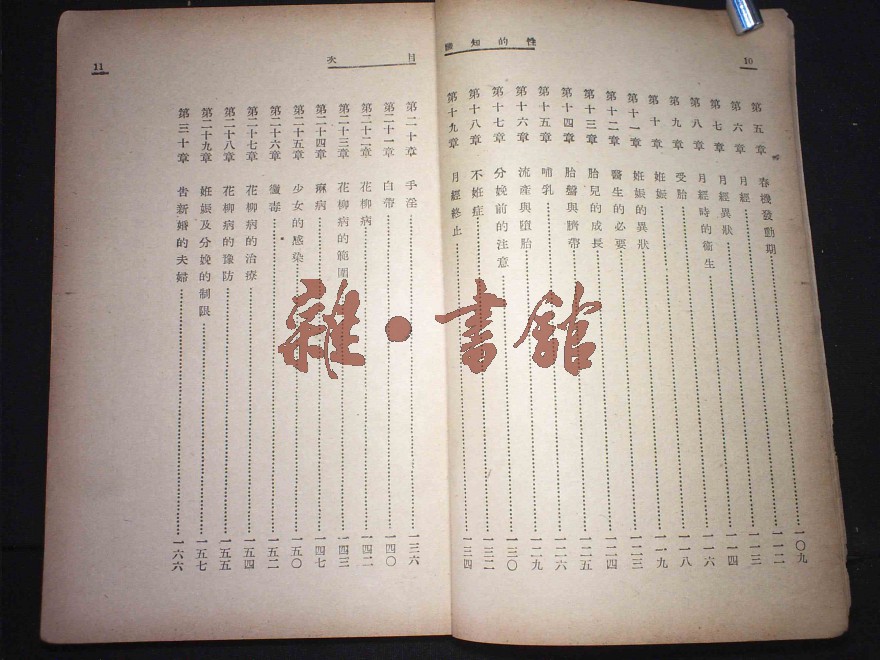 10
性的知識
第五章 春機發動期……一〇九
第六章 月經……一一二
第七章 月經異狀……一一三
第八章 月經時的衞生……一一四
第九章 受胎……一一六
第十章 妊娠……一一八
第十一章 妊娠的異狀……一一九
第十二章 醫生的必要……一二三
第十三章 胎兒的成長……一二四
第十四章 胎盤與臍帶……一二五
第十五章 哺乳……一二六
第十六章 流產與墮胎……一二九
第十七章 分娩前的注意……一三〇
第十八章 不妊症……一三二
第十九章 月經終止……一三四
目次
11
第二十章 手淫……一三六
第二十一章 白帶……一四〇
第二十二章 花柳病……一四二
第二十三章 花柳病的範圍……一四三
第二十四章 痳病……一四七
第二十五章 少女的感染……一五〇
第二十六章 黴毒……一五二
第二十七章 花柳病的治療……一五四
第二十八章 花柳病的豫防……一五五
第二十九章 妊娠及分娩的制限……一五七
第三十章 告新婚的夫婦……一六六
雜·書館